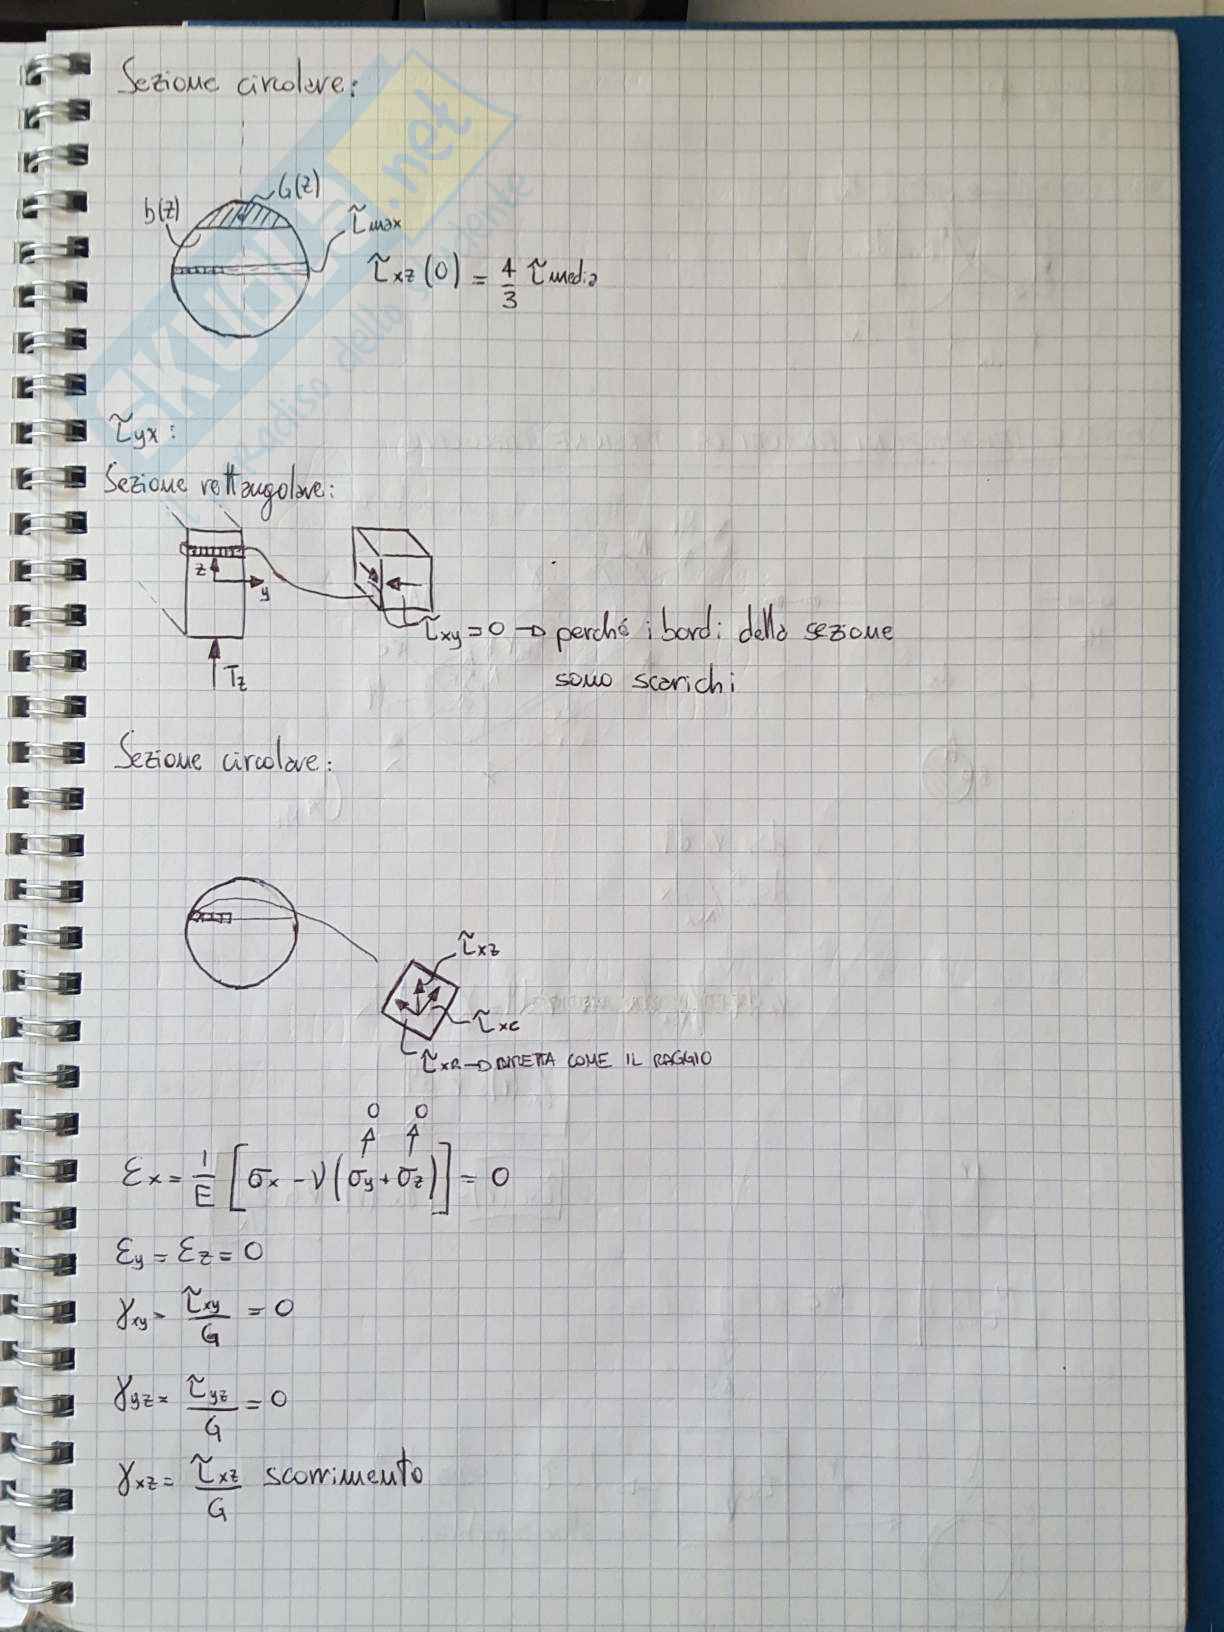 Sezione circolare:
G(z)
b(z)
τmax
τxz (0) = 4/3 τmedia
τyx :
Sezione rettangolare:
z
y
τxy = 0 → perché i bordi della sezione
sono scarichi
Tz
Sezione circolare:
τxz
τxc
τxR → DIRETTA COME IL RAGGIO
0 0
εx = 1/E [σx - ν(σy + σz)] = 0
εy = εz = 0
γxy = τxy/G = 0
γyz = τyz/G = 0
γxz = τxz/G scorrimento
SKUOLA.net
paradiso dello studente